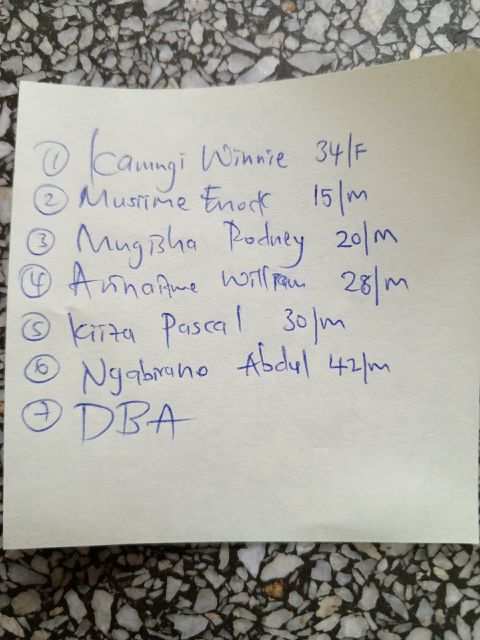 ① Kaumgi Winnie 34/F
② Musiime Enock 15/m
③ Mugisha Rodney 20/m
④ Arinaitwe William 28/m
⑤ Kiiza Pascal 30/m
⑥ Ngabirano Abdul 42/m
⑦ DBA